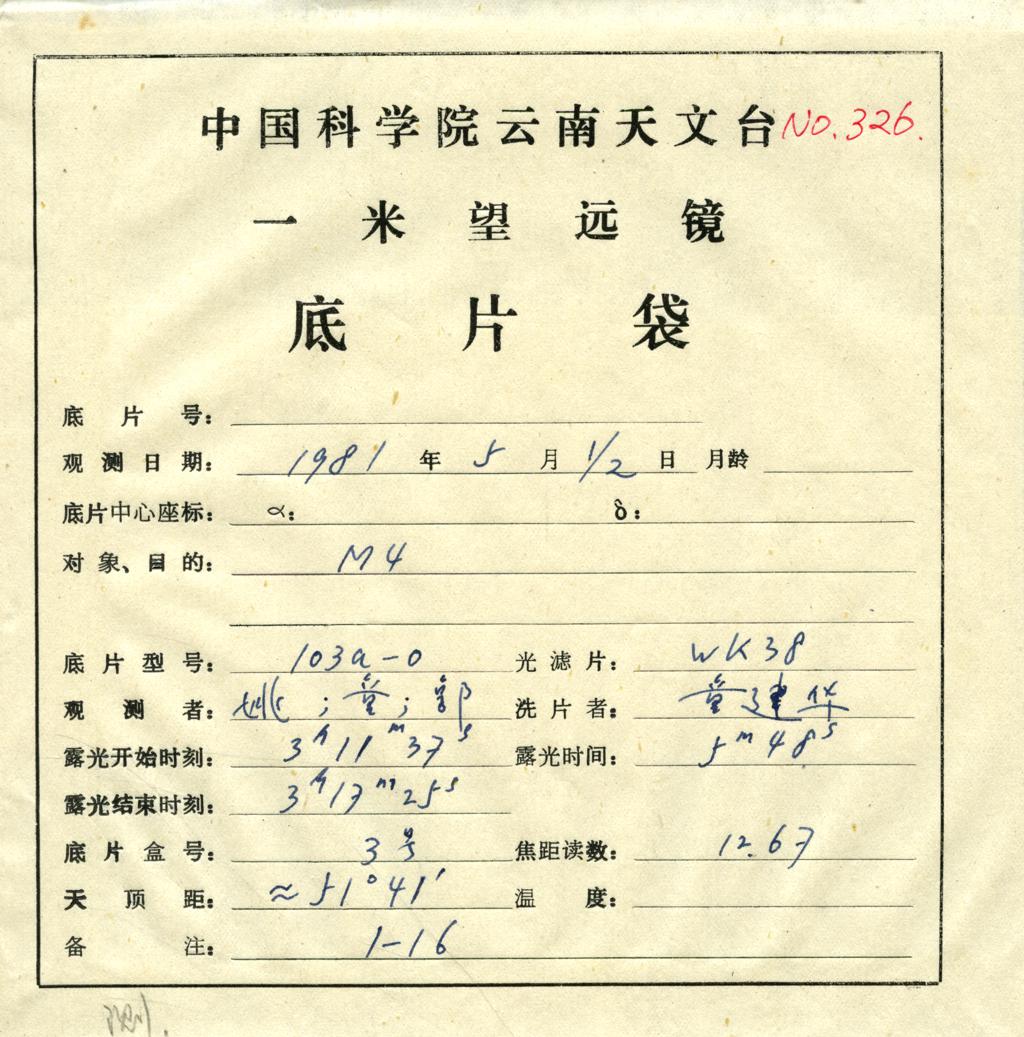 中国科学院云南天文台 No.326.
一米望远镜
底片袋
底片号：
观测日期： 1981 年 5 月 1/2 日 月龄
底片中心座标： α： δ：
对象、目的： M4
底片型号： 103a-O 光滤片： WK38
观测者： 姚；童；郭 洗片者： 童建华
露光开始时刻： 3h11m37s 露光时间： 5m48s
露光结束时刻： 3h17m25s
底片盒号： 3号 焦距读数： 12.67
天顶距： ≈51°41′ 温度：
备注： 1-16